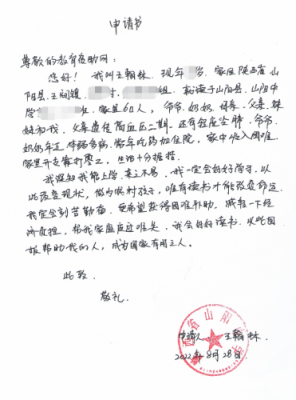 申请书
尊敬的教育资助网：
您好！我叫王翰林，现年 岁，家住陕西省山
阳县王阎镇 村 组，就读于山阳县山阳中
学 ，家里6口人，爷爷、奶奶、母亲、父亲、妹
妹和我，父亲患症高血压三期，还有轻度尘肺，爷爷、
奶奶年迈体弱多病，常年吃药和住院，家中收入困难
家里开支靠打零工，生活十分拮据。
我深知我能上学，来之不易，我一定会好好学习，以
此改变现状，作为农村孩子，唯有读书才能改变命运，
我定会刻苦勤奋，我希望获得困难补助，减轻一下经
济负担，帮我家庭度过难关，我会好好读书，以此回
报帮助我的人，成为国家有用之人。
此致
敬礼
申请人 王翰林
2022年8月28日
省山阳